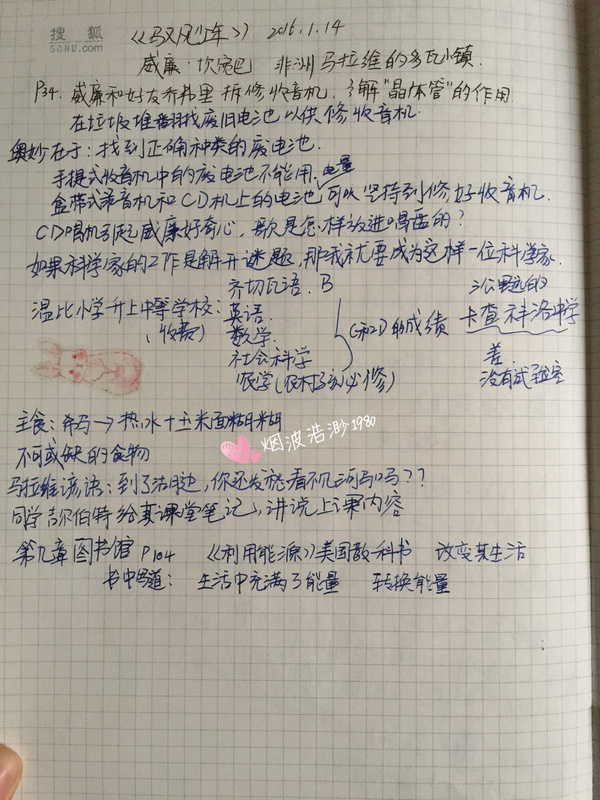 搜狐
SOHU.com
《驭风少年》 2016.1.14
威廉·坎宽巴 非洲马拉维的多瓦小镇.
P34. 威廉和好友乔弗里拆修收音机. 了解"晶体管"的作用.
在垃圾堆翻找废旧电池以供修收音机.
奥妙在于: 找到正确种类的废电池.
手提式收音机中的废电池不能用. 电量
盒带式录音机和CD机上的电池可以坚持到修好收音机.
CD唱机引起威廉好奇心, 歌是怎样放进唱盘的?
如果科学家的工作是解开谜题, 那我就要成为这样一位科学家.
齐切瓦语. B
温比小学升上中等学校: 英语.
(收费) 数学.
社会科学
农学(农村孩必修)
的成绩
公里远的
卡查神洛中学
差
没有试验室
主食: 希马→热水+玉米面糊糊
不可或缺的食物
烟波浩渺1980
马拉维谚语: 到了湖边, 你还发愁看不见河马吗??
同学吉尔伯特给其课堂笔记, 讲说上课内容
第九章图书馆 P104 《利用能源》美国教科书 改变其生活
书中写道: 生活中充满了能量 转换能量